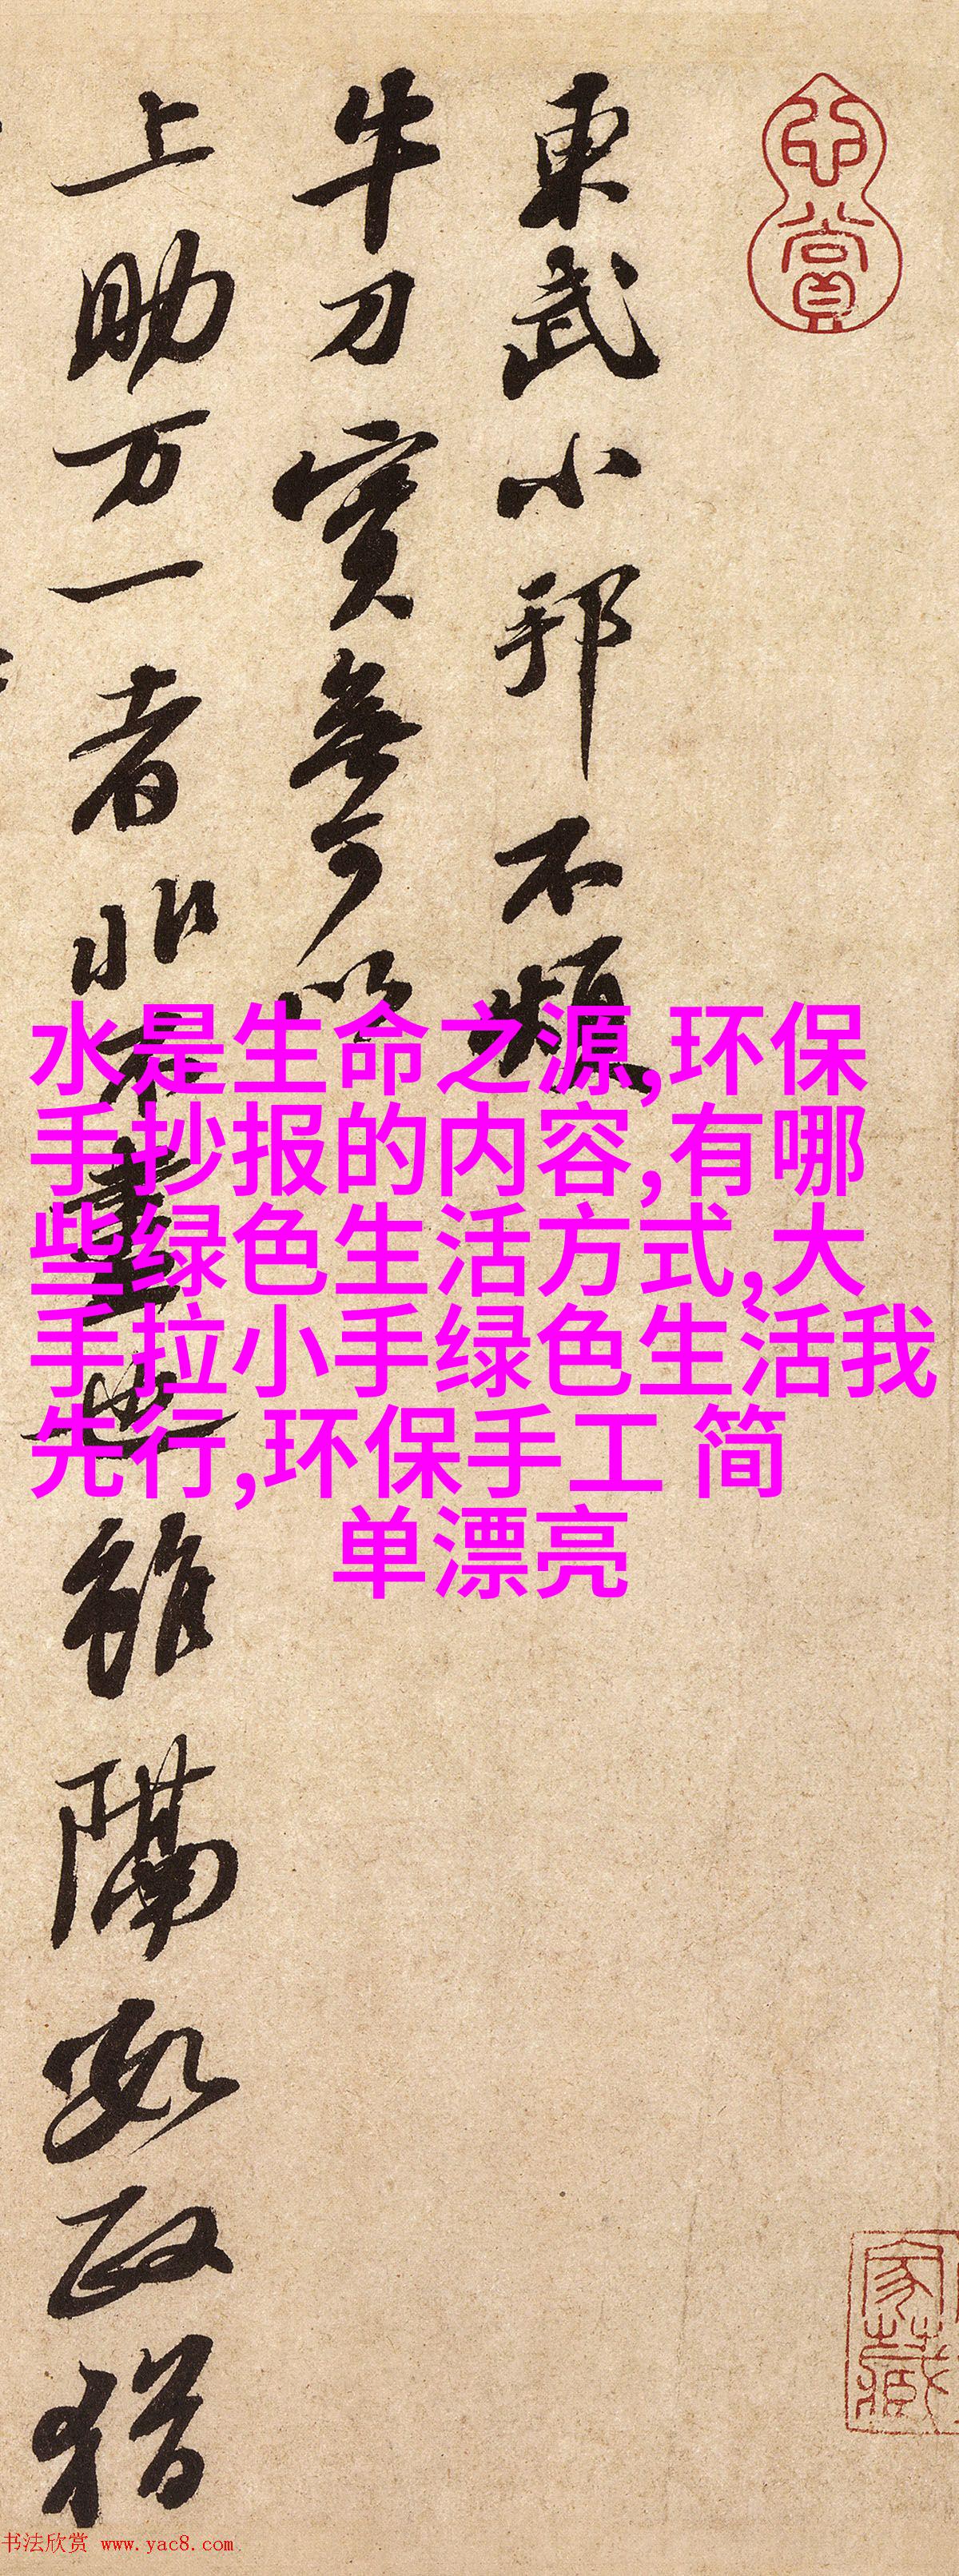 心賞
東武小邦不煩
牛刀實無可以
上助万一者非不盡也雖隔數政猶
水是生命之源,环保
手抄报的内容,有哪
些绿色生活方式,大
手拉小手绿色生活我
先行,环保手工 简
单漂亮
家藏
书法欣赏 www.yac8.com